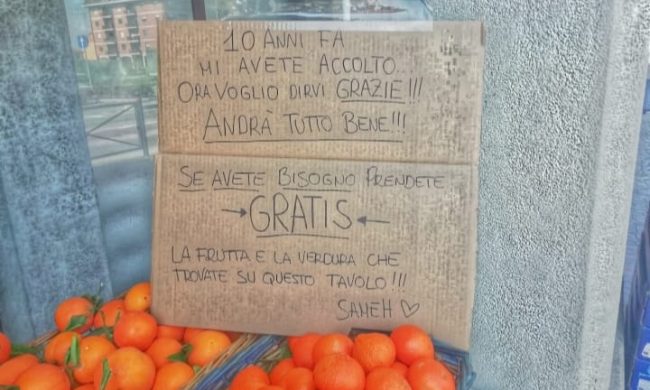 10 ANNI FA
MI AVETE ACCOLTO
ORA VOGLIO DIRVI GRAZIE!!!
ANDRÀ TUTTO BENE!!!
SE AVETE BISOGNO PRENDETE
→GRATIS←
LA FRUTTA E LA VERDURA CHE
TROVATE SU QUESTO TAVOLO!!!
SAMEH ♡